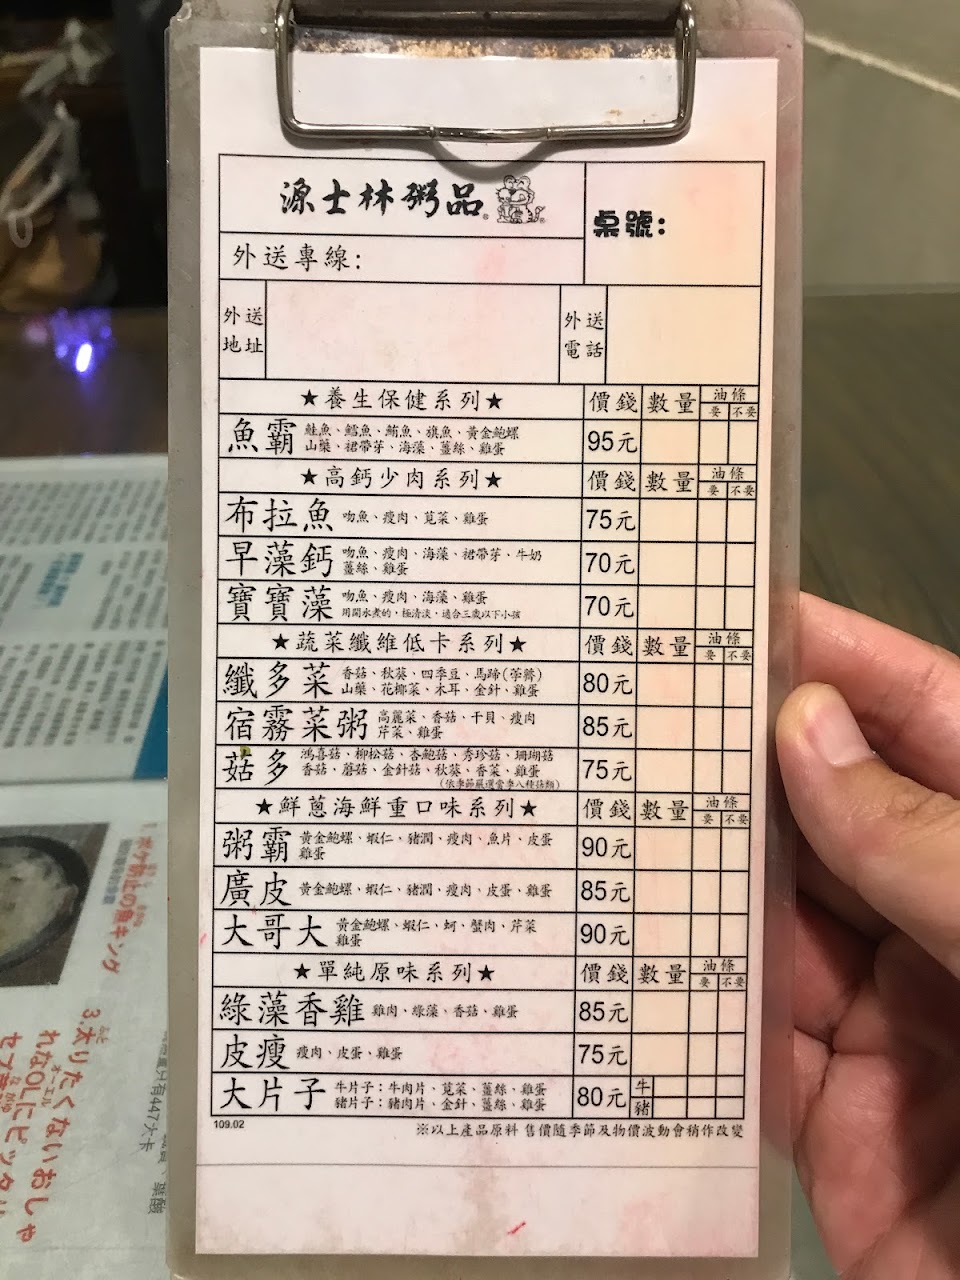 源士林粥品
桌號:
外送專線:
外送地址
外送電話
★養生保健系列★ 價錢 數量 油條 要 不要
魚霸 鮭魚、鱈魚、鮪魚、旗魚、黃金鮑螺 95元
山藥、裙帶芽、海藻、薑絲、雞蛋
★高鈣少肉系列★ 價錢 數量 油條 要 不要
布拉魚 吻魚、瘦肉、莧菜、雞蛋 75元
早藻鈣 吻魚、瘦肉、海藻、裙帶芽、牛奶 70元
薑絲、雞蛋
寶寶藻 吻魚、瘦肉、海藻、雞蛋 70元
用開水煮的，極清淡，適合三歲以下小孩
★蔬菜纖維低卡系列★ 價錢 數量 油條 要 不要
纖多菜 香菇、秋葵、四季豆、馬蹄(荸薺) 80元
山藥、花椰菜、木耳、金針、雞蛋
宿霧菜粥 高麗菜、香菇、干貝、瘦肉 85元
芹菜、雞蛋
菇多 鴻喜菇、柳松菇、杏鮑菇、秀珍菇、珊瑚菇 75元
香菇、蘑菇、金針菇、秋葵、香菜、雞蛋
(依季節嚴選當季八種菇類)
★鮮蔥海鮮重口味系列★ 價錢 數量 油條 要 不要
粥霸 黃金鮑螺、蝦仁、豬潤、瘦肉、魚片、皮蛋 90元
雞蛋
廣皮 黃金鮑螺、蝦仁、豬潤、瘦肉、皮蛋、雞蛋 85元
大哥大 黃金鮑螺、蝦仁、蚵、蟹肉、芹菜 90元
雞蛋
★單純原味系列★ 價錢 數量 油條 要 不要
綠藻香雞 雞肉、綠藻、香菇、雞蛋 85元
皮瘦 瘦肉、皮蛋、雞蛋 75元
大片子 牛片子：牛肉片、莧菜、薑絲、雞蛋 80元 牛
豬片子：豬肉片、金針、薑絲、雞蛋 豬
109.02
※以上產品原料 售價隨季節及物價波動會稍作改變
ボケ防止の魚キング
3.太りたくないおしゃ
れなOLにピッタリ
只有447大卡
葉酸